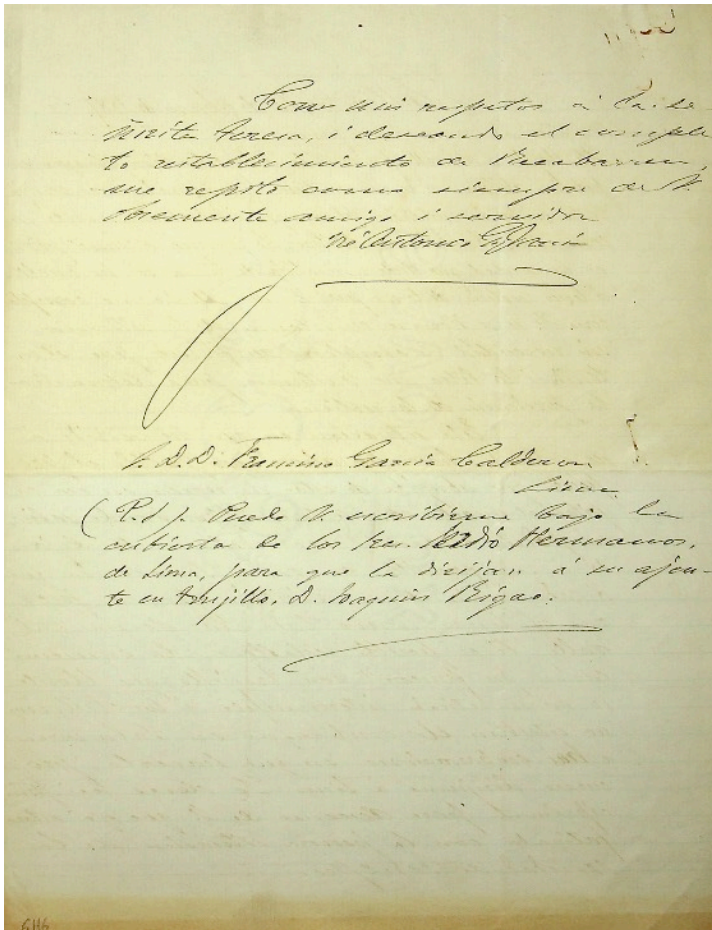 Con mis respetos á la se-
ñorita Teresa, i deseando el comple-
to restablecimiento de
me repito como siempre de V.
obsecuente amigo i servidor
José Antonio García
S. D. D. Francisco García Calderon
Lima
(P. d. Puede V. escribirme bajo la
cubierta de los Sres. Hermanos,
de Lima, para que la dirijan á su ajen-
te en Trujillo, D. Joaquin
6116